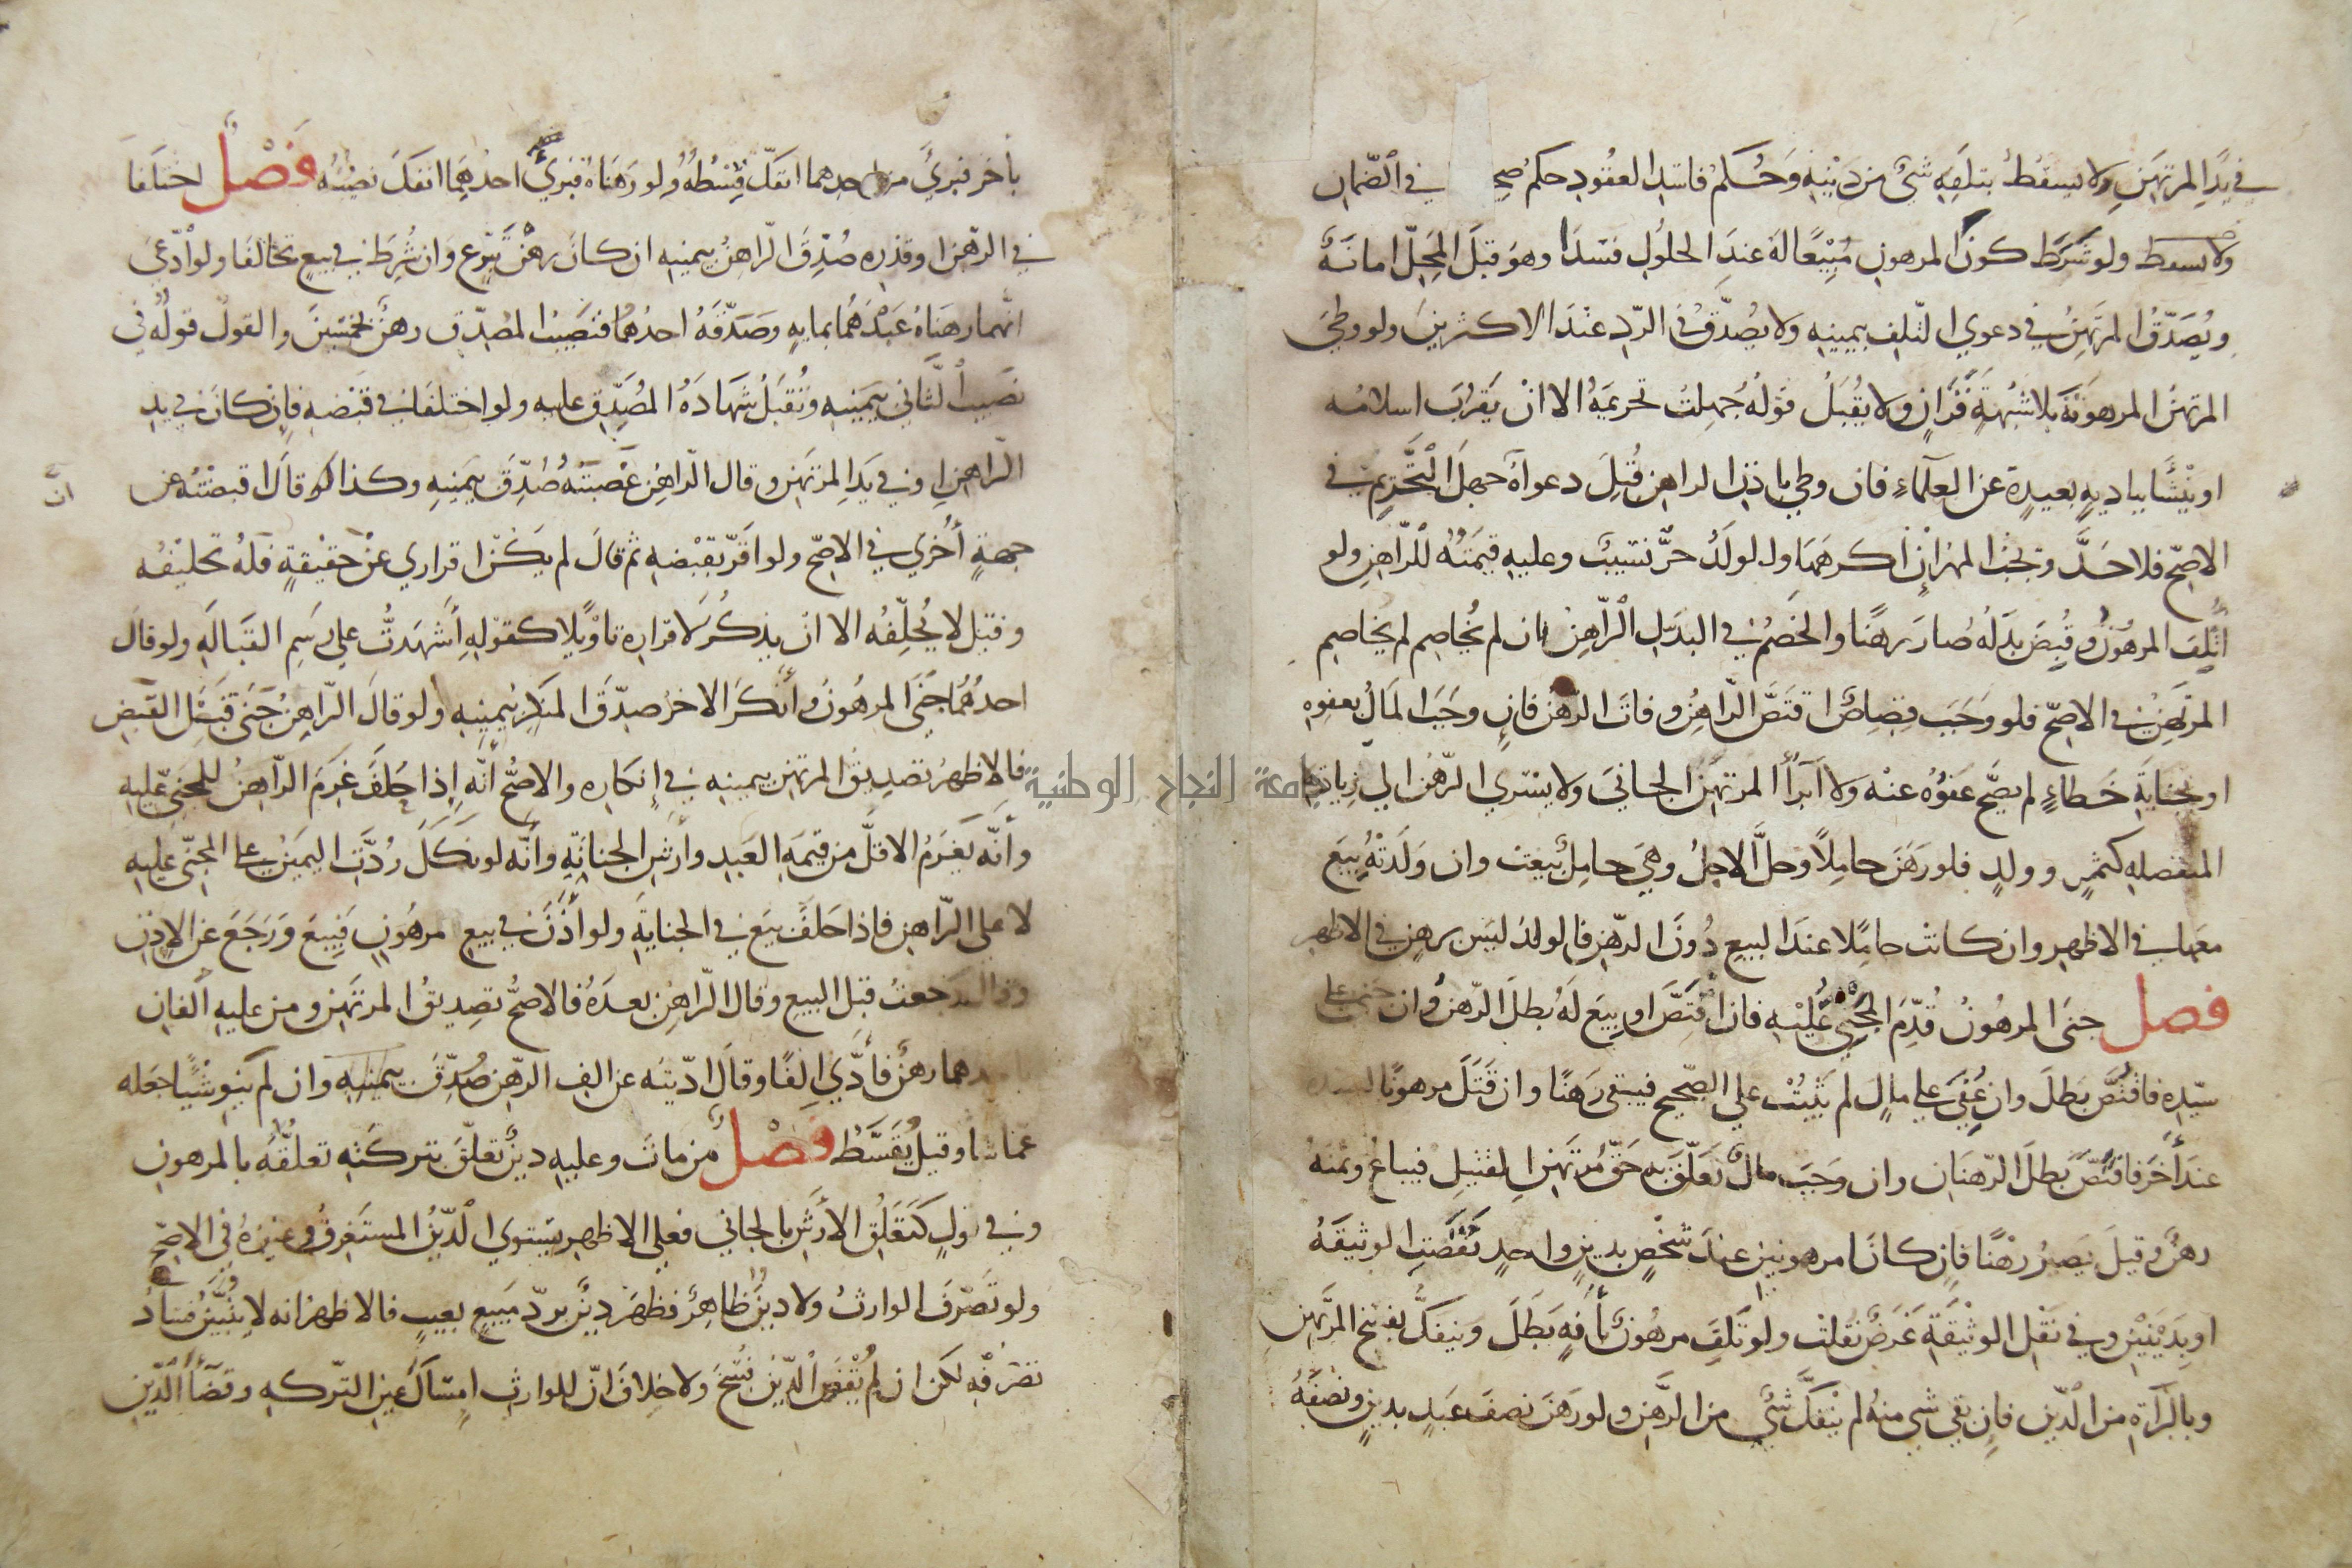 في يد المرتهن ولا يسقط بتلفه شي من دينه وحكم فاسد العقود حكم صح في الضمان
ولا يسقط ولو شرط كون المرهون مبيعا له عند الحلول فسدا وهو قبل المحل امانة
ويصدق المرتهن في دعوي التلف بيمينه ولا يصدق في الرد عند الاكثرين ولو وطي
المرتهن المرهونة بلا شبهة فزان ولا يقبل قوله جهلت تحريمه الا ان يقرب اسلامه
او ينشأ ببادية بعيدة عن العلماء فان وطي باذن الراهن قبل دعواه جهل التحريم في
الاصح فلا حد وتجب المهر إن اكرهها والولد حر نسيب وعليه قيمته للراهن ولو
أتلف المرهون وقبض بدله صار رهنا والخصم في البدل الراهن فان لم يخاصم لم يخاصم
المرتهن في الاصح فلو وجب قصاص اقتص الراهن وفات الرهن فان وجب المال بعفوه
او بجناية خطاء لم يصح عفوه عنه ولا ابرأ المرتهن الجاني ولا يسري الرهن الي زيادته
المنفصله كثمر وولد فلو رهن حاملا وحل الاجل وهي حامل بيعت وان ولدته بيع
معها في الاظهر وان كانت حاملا عند البيع دون الرهن فالولد ليس برهن في الاظهر
فصل جنى المرهون قدم المجني عليه فان اقتص او بيع له بطل الرهن وان جنى على
سيده فاقتص بطل وان عفي على مال لم يثبت علي الصحيح فيبقى رهنا وان قتل مرهونا لسيده
عند أخر فاقتص بطل الرهنان وان وجب مال تعلق به حق مرتهن القتيل فيباع وثمنه
رهن وقيل يصير رهنا فان كانا مرهونين عند شخص بدين واحد نقصت الوثيقة
او بدينين وفي نقل الوثيقة غرض نقلت ولو تلف مرهون بأفة بطل وينفك بفسخ المرتهن
وبالبراة من الدين فان بقي شي منه لم ينفك شي من الرهن ولو رهن نصف عبد بدين ونصفه
بأخر فبرئ من احدهما انفك قسطه ولو رهناه فبري احدهما انفك نصيبه فصل اختلفا
في الرهن او قدره صدق الراهن بيمينه ان كان رهن تبرع وان شرط في بيع تحالفا ولو ادعى
انهما رهناه عبدهما بمايه وصدقه احدهما فنصيب المصدق رهن بخمسين والقول قوله في
نصيب الثاني بيمينه وتقبل شهادة المصدق عليه ولو اختلفا في قبضه فان كان في يد
الراهن او في يد المرتهن وقال الراهن غصبته صدق بيمينه وكذا لو قال اقبضته عن
ان
جهة أخري في الاصح ولو اقر بقبضه ثم قال لم يكن اقراري عن حقيقة فله تحليفه
وقيل لا يحلفه الا ان يذكر لاقراره تاويلا كقوله أشهدت علي رسم القبالة ولو قال
احدهما جنى المرهون وأنكر الاخر صدق المنكر بيمينه ولو قال الراهن جنى قبل القبض
فالاظهر تصديق المرتهن بيمينه في إنكاره والاصح أنه إذا حلف غرم الراهن للمجني عليه
وأنه يغرم الاقل من قيمة العبد وأرش الجناية وأنه لو نكل ردت اليمين على المجني عليه
لا على الراهن فاذا حلف بيع في الجناية ولو أذن في بيع مرهون فبيع ورجع عن الاذن
وقال رجعت قبل البيع وقال الراهن بعده فالاصح تصديق المرتهن ومن عليه الفان
باحدهما رهن فأدي الفا وقال اديته عن الف الرهن صدق بيمينه وان لم ينو شيئا جعله
عما شا وقيل يقسط فصل من مات وعليه دين تعلق بتركته تعلقه بالمرهون
وفي قول كتعلق الأرش بالجاني فعلي الاظهر يستوي الدين المستغرق وغيره في الاصح
ولو تصرف الوارث ولا دين ظاهر فظهر دين برد مبيع بعيب فالاظهر انه لا يتبين فساد
تصرفه لكن ان لم يقض الدين فسخ ولا خلاف ان للوارث امساك عين التركه وقضاأ الدين
جامعة النجاح الوطنية